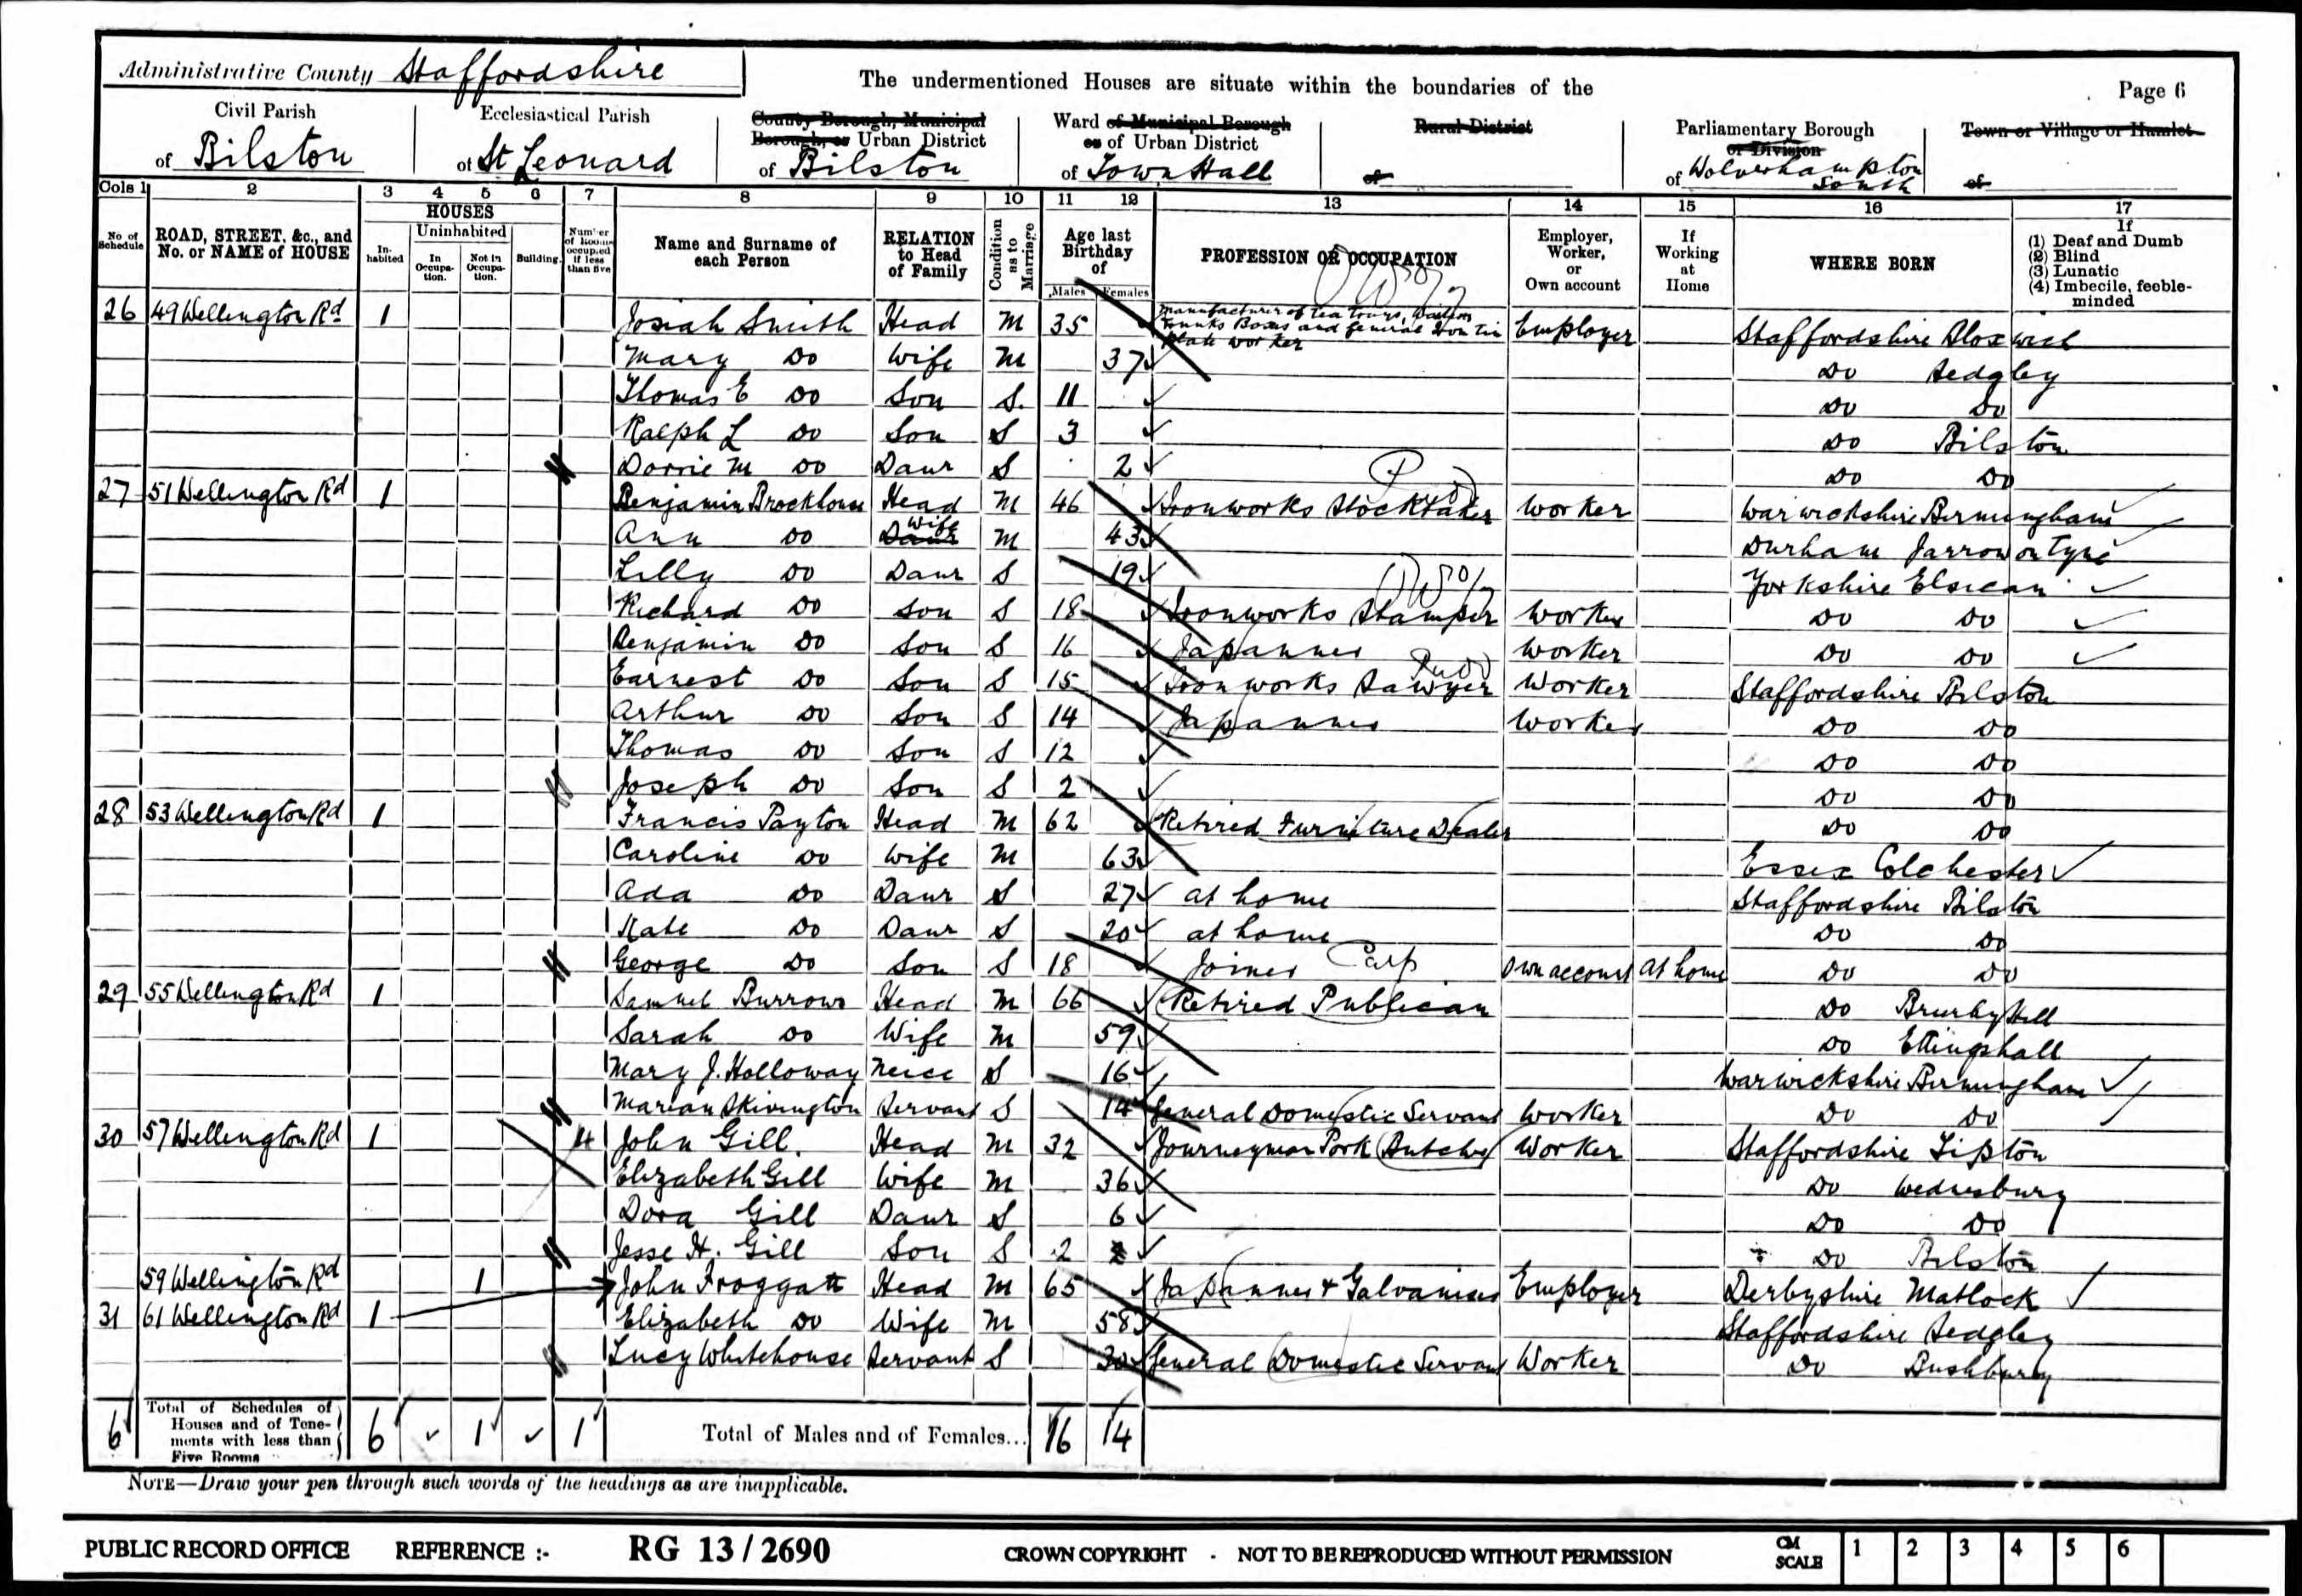 Administrative County Staffordshire
The undermentioned Houses are situate within the boundaries of the
Page 6
Civil Parish of Bilston
Ecclesiastical Parish of St Leonard
County Borough, Municipal Borough, or Urban District of Bilston
Ward of Municipal Borough or of Urban District of Town Hall
Rural District of
Parliamentary Borough or Division of Wolverhampton South
Town or Village or Hamlet of
Cols 1 2 3 4 5 6 7 8 9 10 11 12 13 14 15 16 17
No of Schedule
ROAD, STREET, &c., and No. or NAME of HOUSE
HOUSES
Inhabited
Uninhabited
In Occupation.
Not in Occupation.
Building.
Number of Rooms occupied if less than five
Name and Surname of each Person
RELATION to Head of Family
Condition as to Marriage
Age last Birthday of
Males Females
PROFESSION OR OCCUPATION
Employer, Worker, or Own account
If Working at Home
WHERE BORN
If
(1) Deaf and Dumb
(2) Blind
(3) Lunatic
(4) Imbecile, feeble-minded
26 49 Wellington Rd 1 Josiah Smith Head M 35 Manufacturer of Tea Trays, Trunks Boxes and General Iron Tin Plate Worker Employer Staffordshire Bloxwich
Mary Do Wife M 37 Do Sedgley
Thomas E Do Son S. 11 Do Do
Ralph L Do Son S 3 Do Bilston
Dorrie M Do Daur S 2 Do Do
27 51 Wellington Rd 1 Benjamin Brockhouse Head M 46 Ironworks Stocktaker Worker Warwickshire Birmingham
Ann Do Daur Wife M 43 Durham Jarrow on Tyne
Lilly Do Daur S 19 Yorkshire Elsecar
Richard Do Son S 18 Ironworks Stamper Worker Do Do
Benjamin Do Son S 16 Japanner Worker Do Do
Earnest Do Son S 15 Ironworks Sawyer Worker Staffordshire Bilston
Arthur Do Son S 14 Japanner Worker Do Do
Thomas Do Son S 12 Do Do
Joseph Do Son S 2 Do Do
28 53 Wellington Rd 1 Francis Payton Head M 62 Retired Furniture Dealer Do Do
Caroline Do Wife M 63 Essex Colchester
Ada Do Daur S 27 at home Staffordshire Bilston
Kate Do Daur S 20 at home Do Do
George Do Son S 18 Joiner Carp Own account At home Do Do
29 55 Wellington Rd 1 Samuel Burrows Head M 66 Retired Publican Do
Sarah Do Wife M 59 Do Ettingshall
Mary J. Holloway Neice S 16 Warwickshire Birmingham
Marian Skivington Servant S 14 General Domestic Servant Worker Do Do
30 57 Wellington Rd 1 4 John Gill. Head M 32 Journeyman Pork Butcher Worker Staffordshire Tipton
Elizabeth Gill Wife M 36 Do Wednesbury
Dora Gill Daur S 6 Do Do
Jesse H. Gill Son S 2 Do Bilston
59 Wellington Rd 1 John Froggatt Head M 65 Japanner & Galvaniser Employer Derbyshire Matlock
31 61 Wellington Rd 1 Elizabeth Do Wife M 58 Staffordshire Sedgley
Lucy Whitehouse Servant S 30 General Domestic Servant Worker Do Bushbury
6 Total of Schedules of Houses and of Tenements with less than Five Rooms 6 1 1 Total of Males and of Females... 16 14
NOTE—Draw your pen through such words of the headings as are inapplicable.
PUBLIC RECORD OFFICE REFERENCE :- RG 13 / 2690 CROWN COPYRIGHT - NOT TO BE REPRODUCED WITHOUT PERMISSION CM SCALE 1 2 3 4 5 6